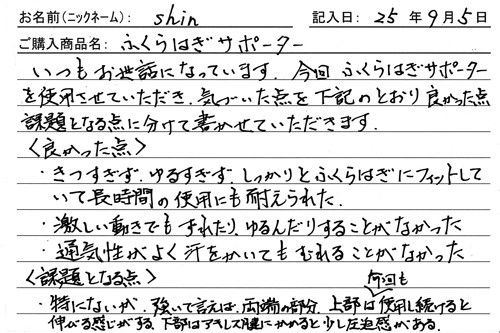 お名前(ニックネーム): shin 記入日: 25 年 9 月 5 日
ご購入商品名: ふくらはぎサポーター
いつもお世話になっています。今回 ふくらはぎサポーター
を使用させていただき、気づいた点を下記のとおり良かった点
課題となる点に分けて書かせていただきます。
<良かった点>
・きつすぎず、ゆるすぎず、しっかりとふくらはぎにフィットして
いて長時間の使用にも耐えられた.
・激しい動きでもずれたり、ゆるんだりすることがなかった
・通気性がよく汗をかいてもむれることがなかった
<課題となる点>
何回も
・特にないが、強いて言えば、両端の部分、上部は使用し続けると
伸びる感じがする、下部はアキレス腱にかかると少し圧迫感がある.